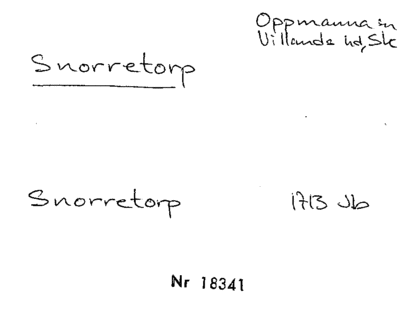 Oppmanna sn
Villands hd, Sk
Snorretorp
Snorretorp 1713 Jb
Nr 18341